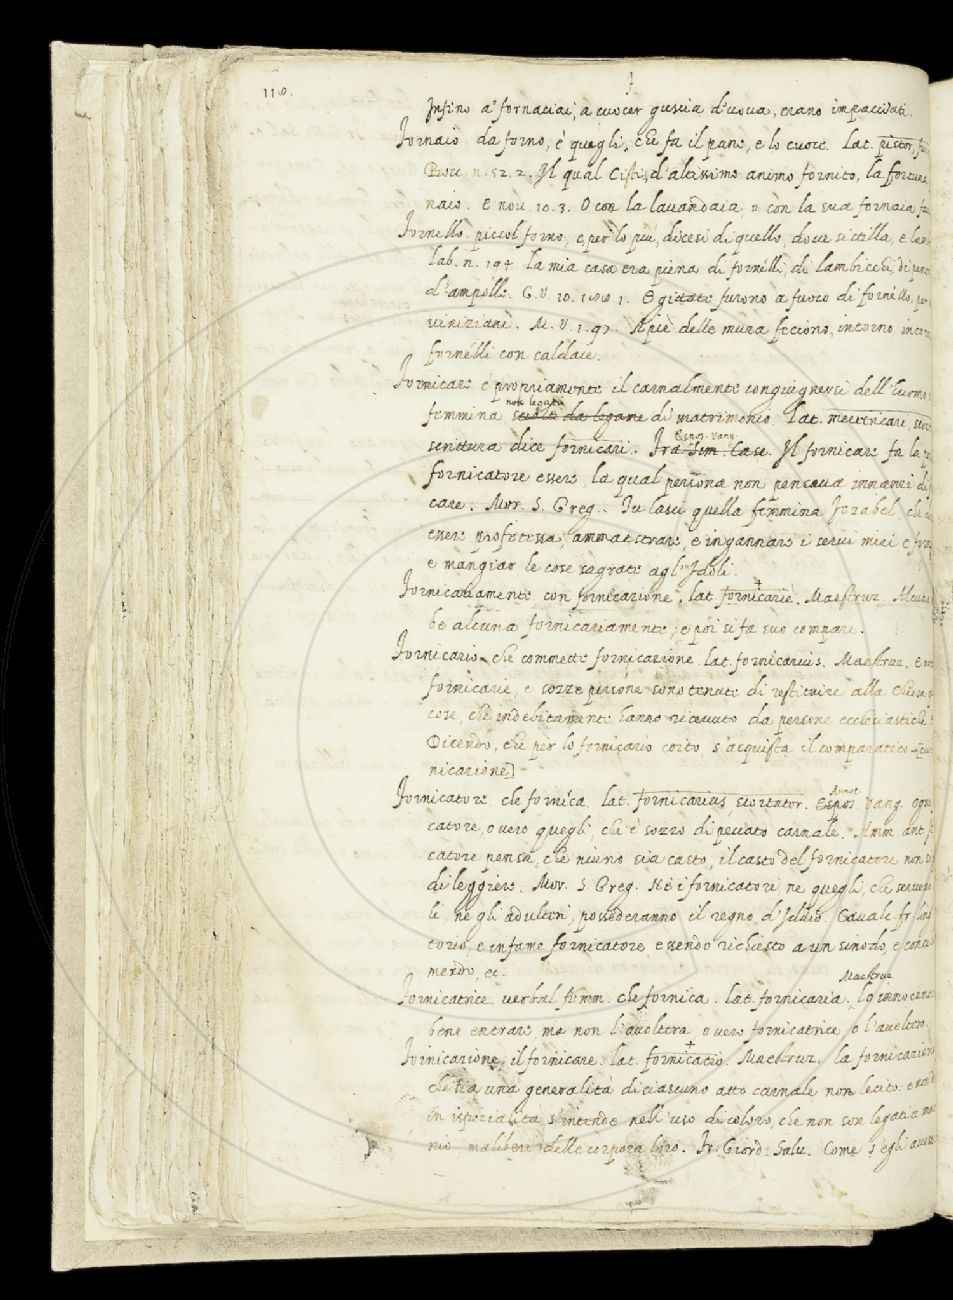 110.
Infino a' fornaciai, a cuocer guscia d'uova, erano impacciati.
Fornaio da forno, è quegli, che fa il pane, e lo cuoce. Lat. pistor,
Bocc. n. 52. 2. Il qual Cisti, d'altissimo animo fornito, la fortuna
naio. E nov. 10. 3. O con la lavandaia, o con la sua fornaia
Fornello, piccol forno, e per lo più, dicesi di quello, dove si stilla, e
lab. n. 194 la mia casa era piena di fornelli, di lambicchi, di
d'ampolle. G. V. 10. Egidate furono a fuoco di fornello, per
viniziani. M. V. 1. 97. Appiè delle mura feciono, intorno
fornelli con caldaie.
Fornicare è propriamente il carnalmente congiugnersi dell'huomo
non legati
femmina sciolti da legame di matrimonio. Lat. meretricari,
Espos. Vang.
scrittura dice fornicari. Fra Sim. Casc. Il fornicare fa la
fornicatore essere, la qual persona non pensava innanzi di
care. Mor. S. Greg. Tu lasci quella femmina Iezabel, che
essere profetessa, ammaestrare, e ingannare i servi miei e
e mangiar le cose sagrate agl'Idoli.
Fornicariamente, con fornicazione. lat. fornicariè. Maestruz. Alcuno
be alcuna fornicariamente, e poi si fa suo compare.
Fornicario, che commette fornicazione. lat. fornicarius. Maestruz. E
fornicarie, e sozze persone sono tenute di restituire alla Chiesa
cose, che indebitamente hanno ricevuto da persone ecclesiastiche
Dicendo, che per lo fornicario coito, s'acquista il comparatico
nicazione]
Fornicatore, che fornica. lat. fornicarius, scortator. Annot. Espos. Vang. Ogni
catore, o vero quegli, che è sozzo di peccato carnale. Amm. ant.
catore pensa, che niuno sia casto, il casto del fornicatore non
di leggiere. Mor. S. Greg. Nè i fornicatori, ne quegli, che servono
li, nè gli adulteri, possederanno il regno d'Iddio. Cavalc. fr. ling
torio, e infame fornicatore, essendo richiesto a un sinodo, e
mendo, ec.
Maestruz
Fornicatrice verbal femm. che fornica. lat. fornicaria. lo innocente
bene entrare, ma non l'avoltera, o vero fornicatrice, o l'avoltero.
Fornicazione, il fornicare. lat. fornicatio. Maestruz. la fornicazione
che sia una generalità di ciascuno atto carnale non lecito. e
in ispezialità s'intende nell'uso di coloro, che non son legati a
nio ma liberi delle corpora loro. Fr. Giord. Salv. Come s'egli